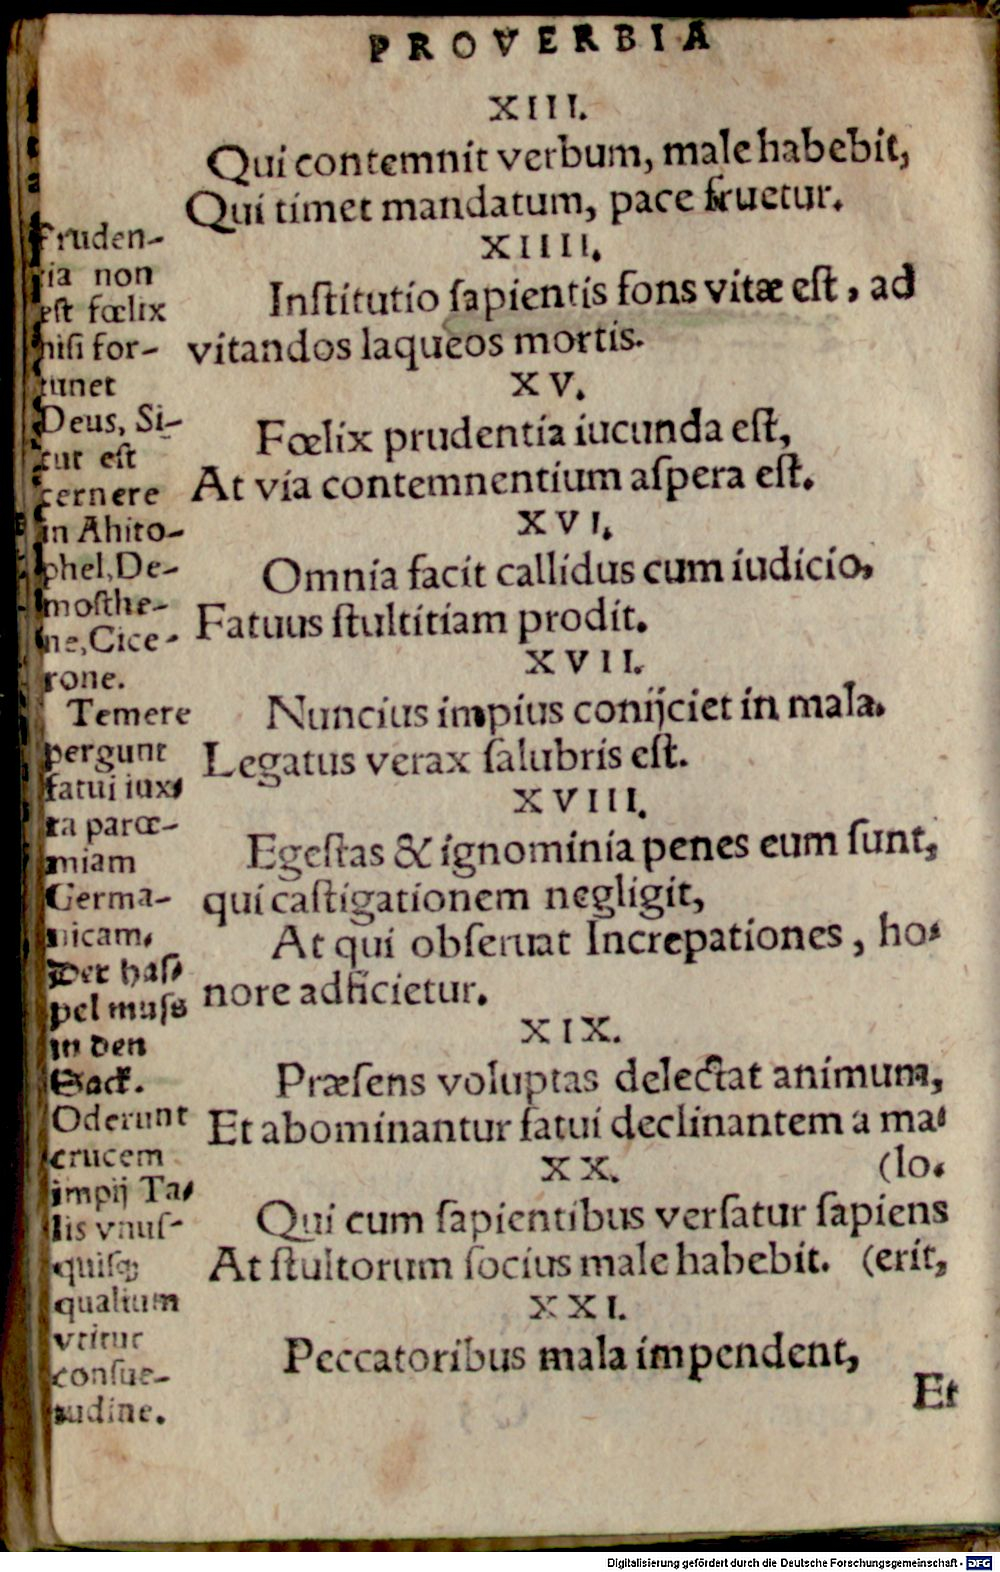 PROVERBIA
XIII.
Qui contemnit verbum, male habebit,
Qui timet mandatum, pace fruetur.
XIIII.
Inſtitutio ſapientis fons vitæ eſt, ad
vitandos laqueos mortis.
XV.
Fœlix prudentia iucunda eſt,
At via contemnentium aſpera eſt.
XVI.
Omnia facit callidus cum iudicio,
Fatuus ſtultitiam prodit.
XVII.
Nuncius impius conijciet in mala.
Legatus verax ſalubris eſt.
XVIII.
Egeſtas & ignominia penes eum ſunt,
qui caſtigationem negligit,
At qui obſeruat Increpationes, ho-
nore adficietur.
XIX.
Præſens voluptas delectat animum,
Et abominantur fatui declinantem a ma-
(lo.
XX.
Qui cum ſapientibus verſatur ſapiens
(erit,
At ſtultorum ſocius male habebit.
XXI.
Peccatoribus mala impendent,
Et
Pruden-
tia non
eſt fœlix
niſi for-
tunet
Deus, Si-
cut eſt
cernere
in Ahito-
phel, De-
moſthe-
ne, Cice-
rone.
Temere
pergunt
fatui iux-
ta parœ-
miam
Germa-
nicam.
Der haſ-
pel muſs
in den
Sack.
Oderunt
crucem
impij Ta-
lis vnuſ-
quiſq;
qualium
vtitur
conſue-
tudine.
Digitalisierung gefördert durch die Deutsche Forschungsgemeinschaft - DFG